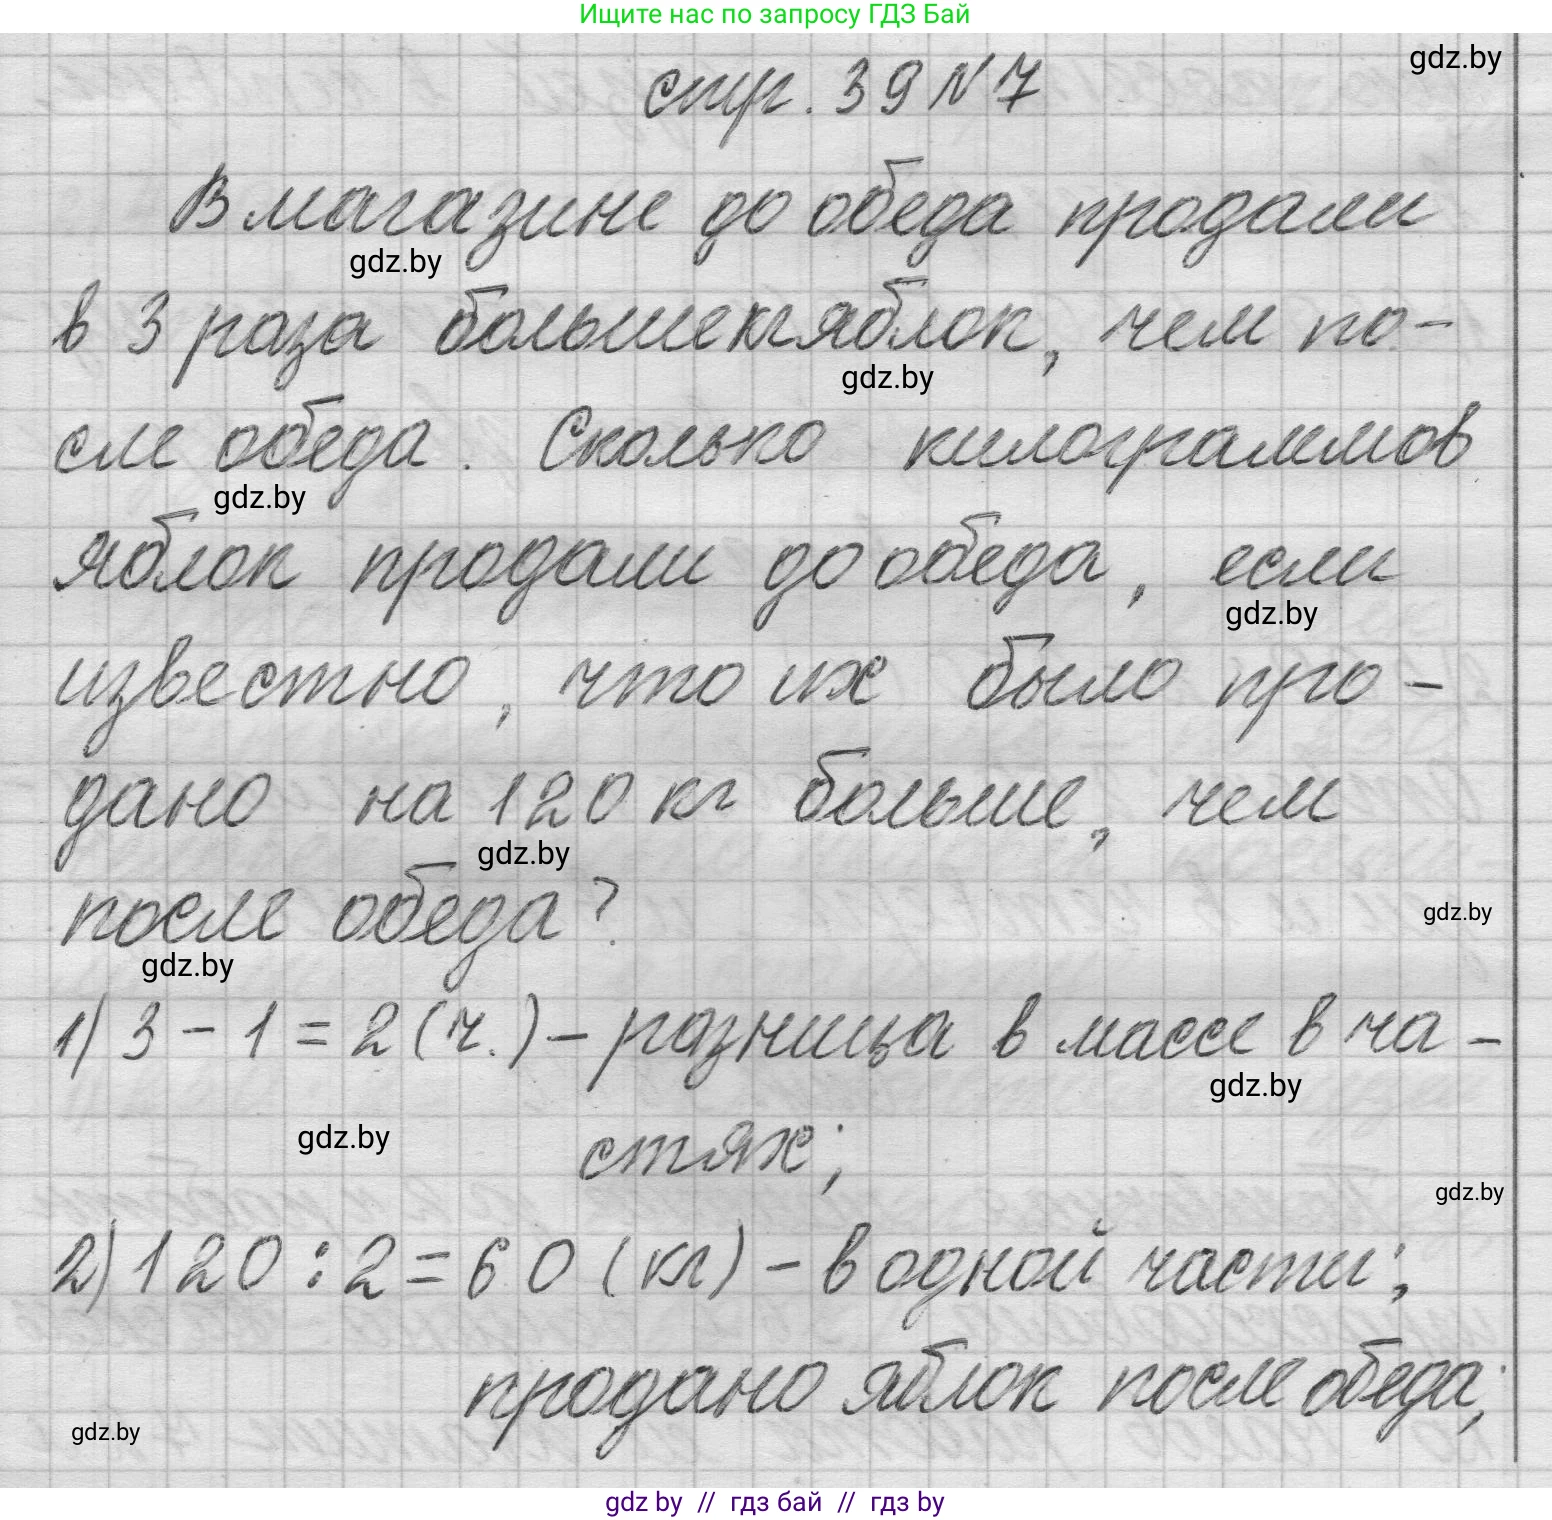 Ищите нас по запросу ГДЗ Бай
gdz.by
стр. 39 N 7
В магазине до обеда продали
gdz.by
в 3 раза больше кг яблок, чем по-
gdz.by
сле обеда. Сколько килограммов
gdz.by
яблок продали до обеда, если
gdz.by
известно, что их было про-
дано на 120 кг больше, чем
gdz.by
после обеда?
gdz.by
gdz.by
1) 3 - 1 = 2 (ч.) - разница в массе в ча-
gdz.by
gdz.by
стях;
gdz.by
2) 120 : 2 = 60 (кг) - в одной части;
продано яблок после обеда;
gdz.by
gdz by // гдз бай // гдз by